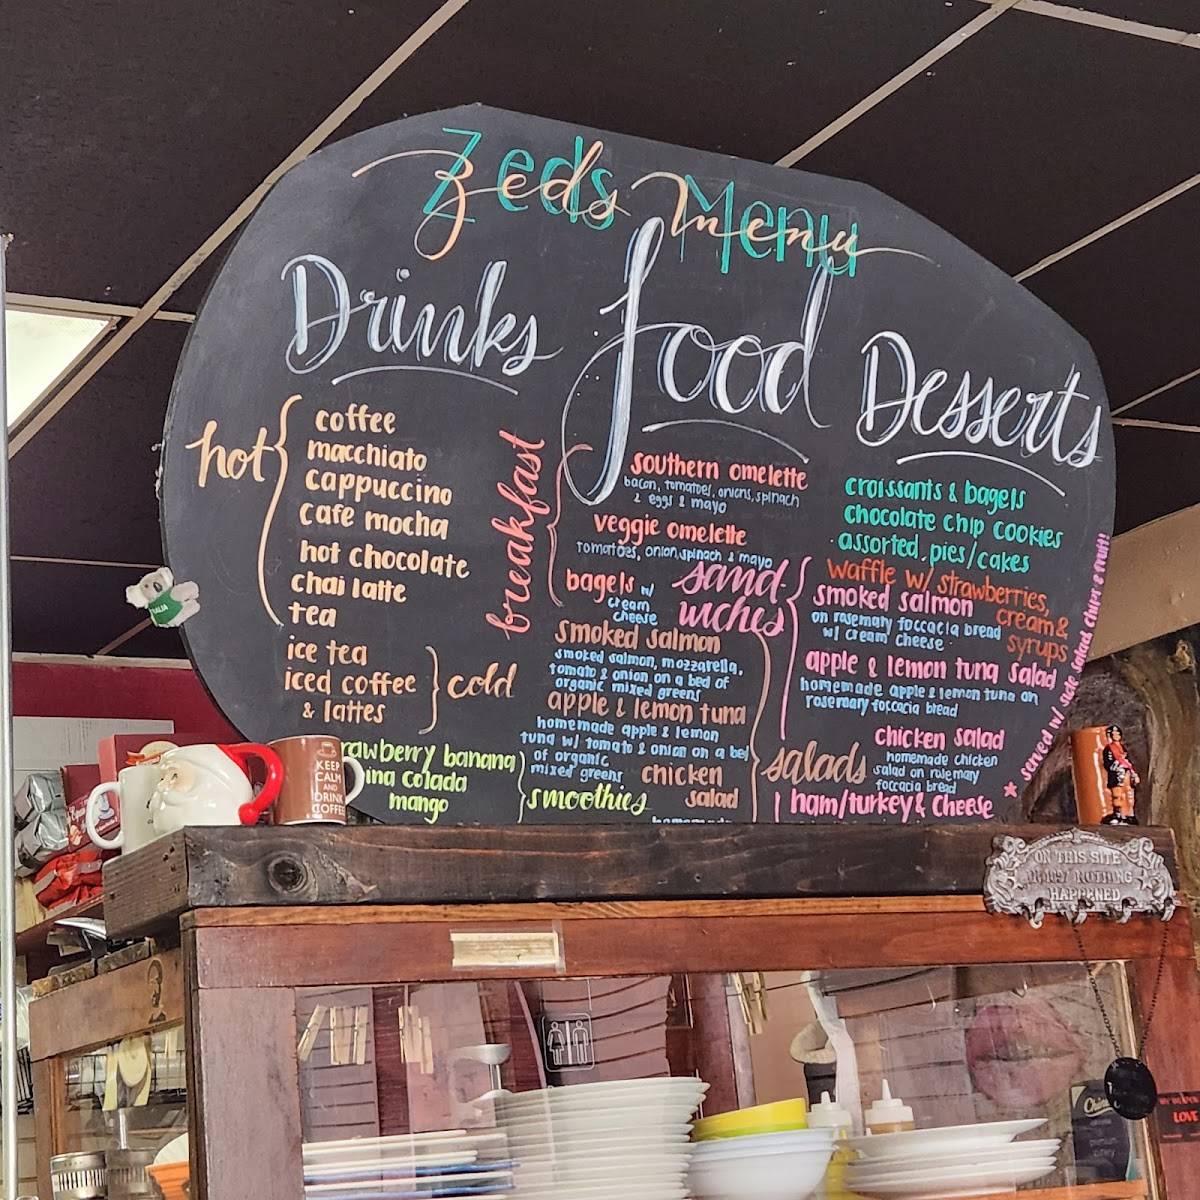 Zeds Menu
zeds menu
Drinks
hot
coffee
macchiato
cappuccino
cafe mocha
hot chocolate
chai latte
tea
ice tea
iced coffee
& lattes
cold
rawberry banana
ina colada
mango
smoothies
food
breakfast
southern omelette
bacon, tomatoes, onions, spinach
& eggs & mayo
veggie omelette
tomatoes, onion, spinach & mayo
bagels w/
cream
cheese
salads
smoked salmon
smoked salmon, mozzarella,
tomato & onion on a bed of
organic mixed greens
apple & lemon tuna
homemade apple & lemon
tuna w/ tomato & onion on a bed
of organic
mixed greens
chicken
salad
sand
wiches
smoked salmon
on rosemary foccacia bread
w/ cream cheese
apple & lemon tuna salad
homemade apple & lemon tuna on
rosemary foccacia bread
chicken salad
homemade chicken
salad on rosemary
foccacia bread
ham/turkey & cheese
served w/ side salad chips & fruit!
Desserts
croissants & bagels
chocolate chip cookies
assorted pies/cakes
waffle w/ strawberries,
cream &
syrups
KEEP
CALM
AND
DRINK
COFFEE
ON THIS SITE
NOTHING
HAPPENED
LOVE